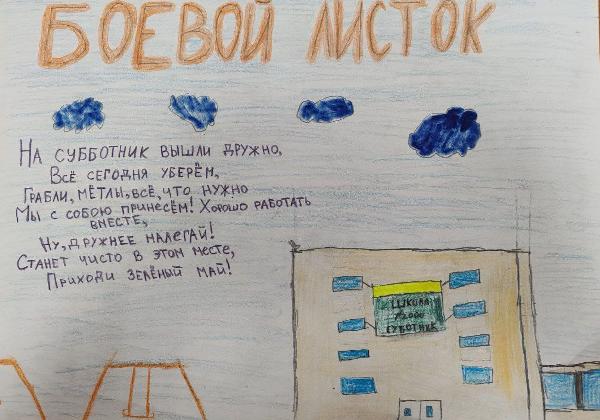 БОЕВОЙ ЛИСТОК
НА СУББОТНИК ВЫШЛИ ДРУЖНО,
ВСЁ СЕГОДНЯ УБЕРЁМ,
ГРАБЛИ, МЁТЛЫ, ВСЁ, ЧТО НУЖНО
МЫ С СОБОЮ ПРИНЕСЁМ! ХОРОШО РАБОТАТЬ
ВМЕСТЕ,
НУ, ДРУЖНЕЕ НАЛЕГАЙ!
СТАНЕТ ЧИСТО В ЭТОМ МЕСТЕ,
ПРИХОДИ ЗЕЛЁНЫЙ МАЙ!
ШКОЛА
СУБОТНИК